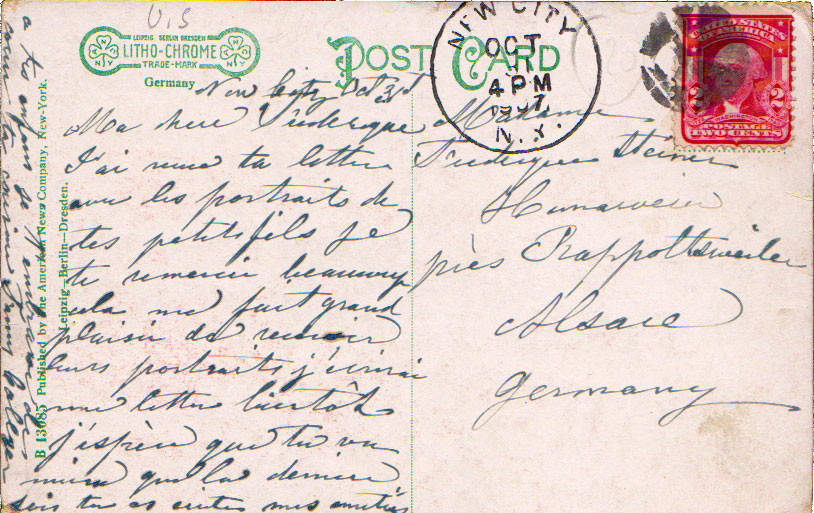 U.S
LEIPZIG BERLIN DRESDEN
LITHO-CHROME
TRADE-MARK
Germany
POST CARD
NEW CITY
OCT
4 PM
1907
N.Y.
UNITED STATES OF AMERICA
2 2
POSTAGE
TWO CENTS
New City Oct 3rd
Ma chere Frederique
J'ai recue ta lettre
avec les portraits de
tes petits fils je
te remercie beaucoup
cela me fait grand
plaisir de recevoir
leurs portraits j'ecrirai
une lettre bientôt
j'espère que tu va
mieux que la derniere
fois tu as ecrites mes amitiés
a tes enfans je
cousine Fanny
Madame
Frederique Steiner
Hunaweier
près Rappoltsweiler
Alsace
Germany
B 13085 Published by The American News Company, New-York.
Leipzig—Berlin—Dresden.